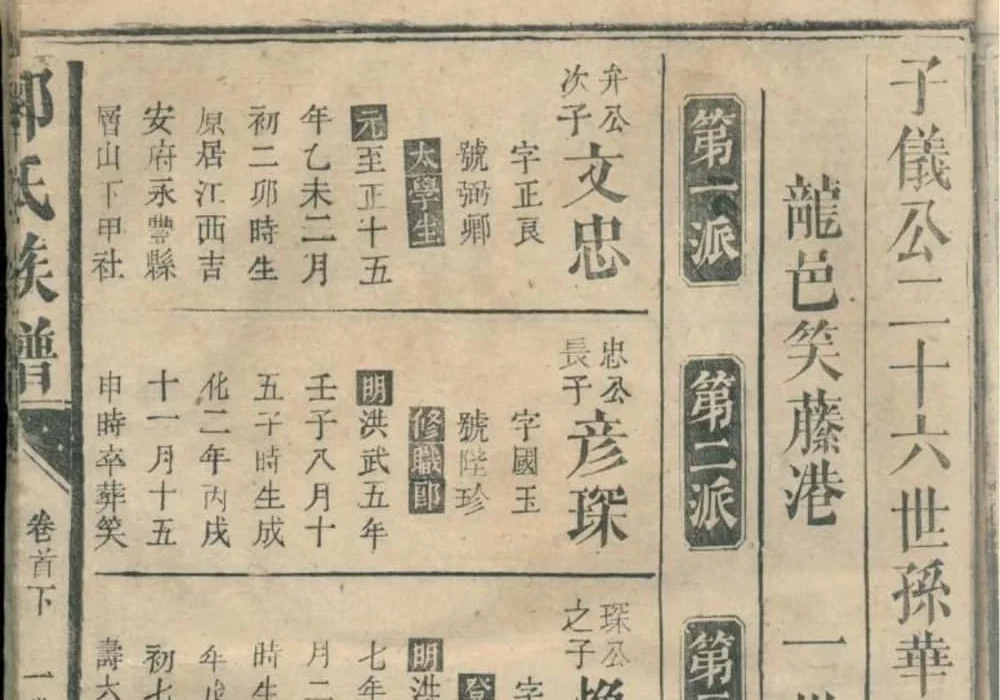 子儀公二十六世孫華
龍邑笑藤港 一
第一派
弁公次子文忠
字正良
號弼卿
太學生
元至正十五
年乙未二月
初二卯時生
原居江西吉
安府永豐縣
層山下甲社
第二派
忠公長子彦琛
字國玉
號陛珍
修職郎
明洪武五年
壬子八月十
五子時生成
化二年丙戌
十一月十五
申時卒葬笑
第
琛公之子
字
登
明洪
七年
月二
時生
年戊
初七
壽六
氏族譜
卷首下
一